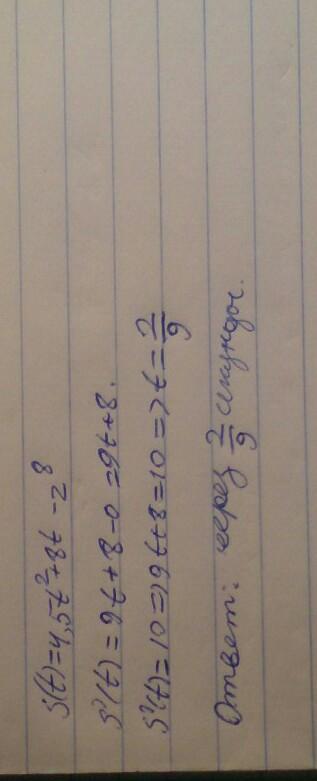 S(t)=4,5t²+8t-2⁸
S'(t)=9t+8-0=9t+8.
S'(t)=10=>9t+8=10=>t=2/9
Ответ: через 2/9 секунды.